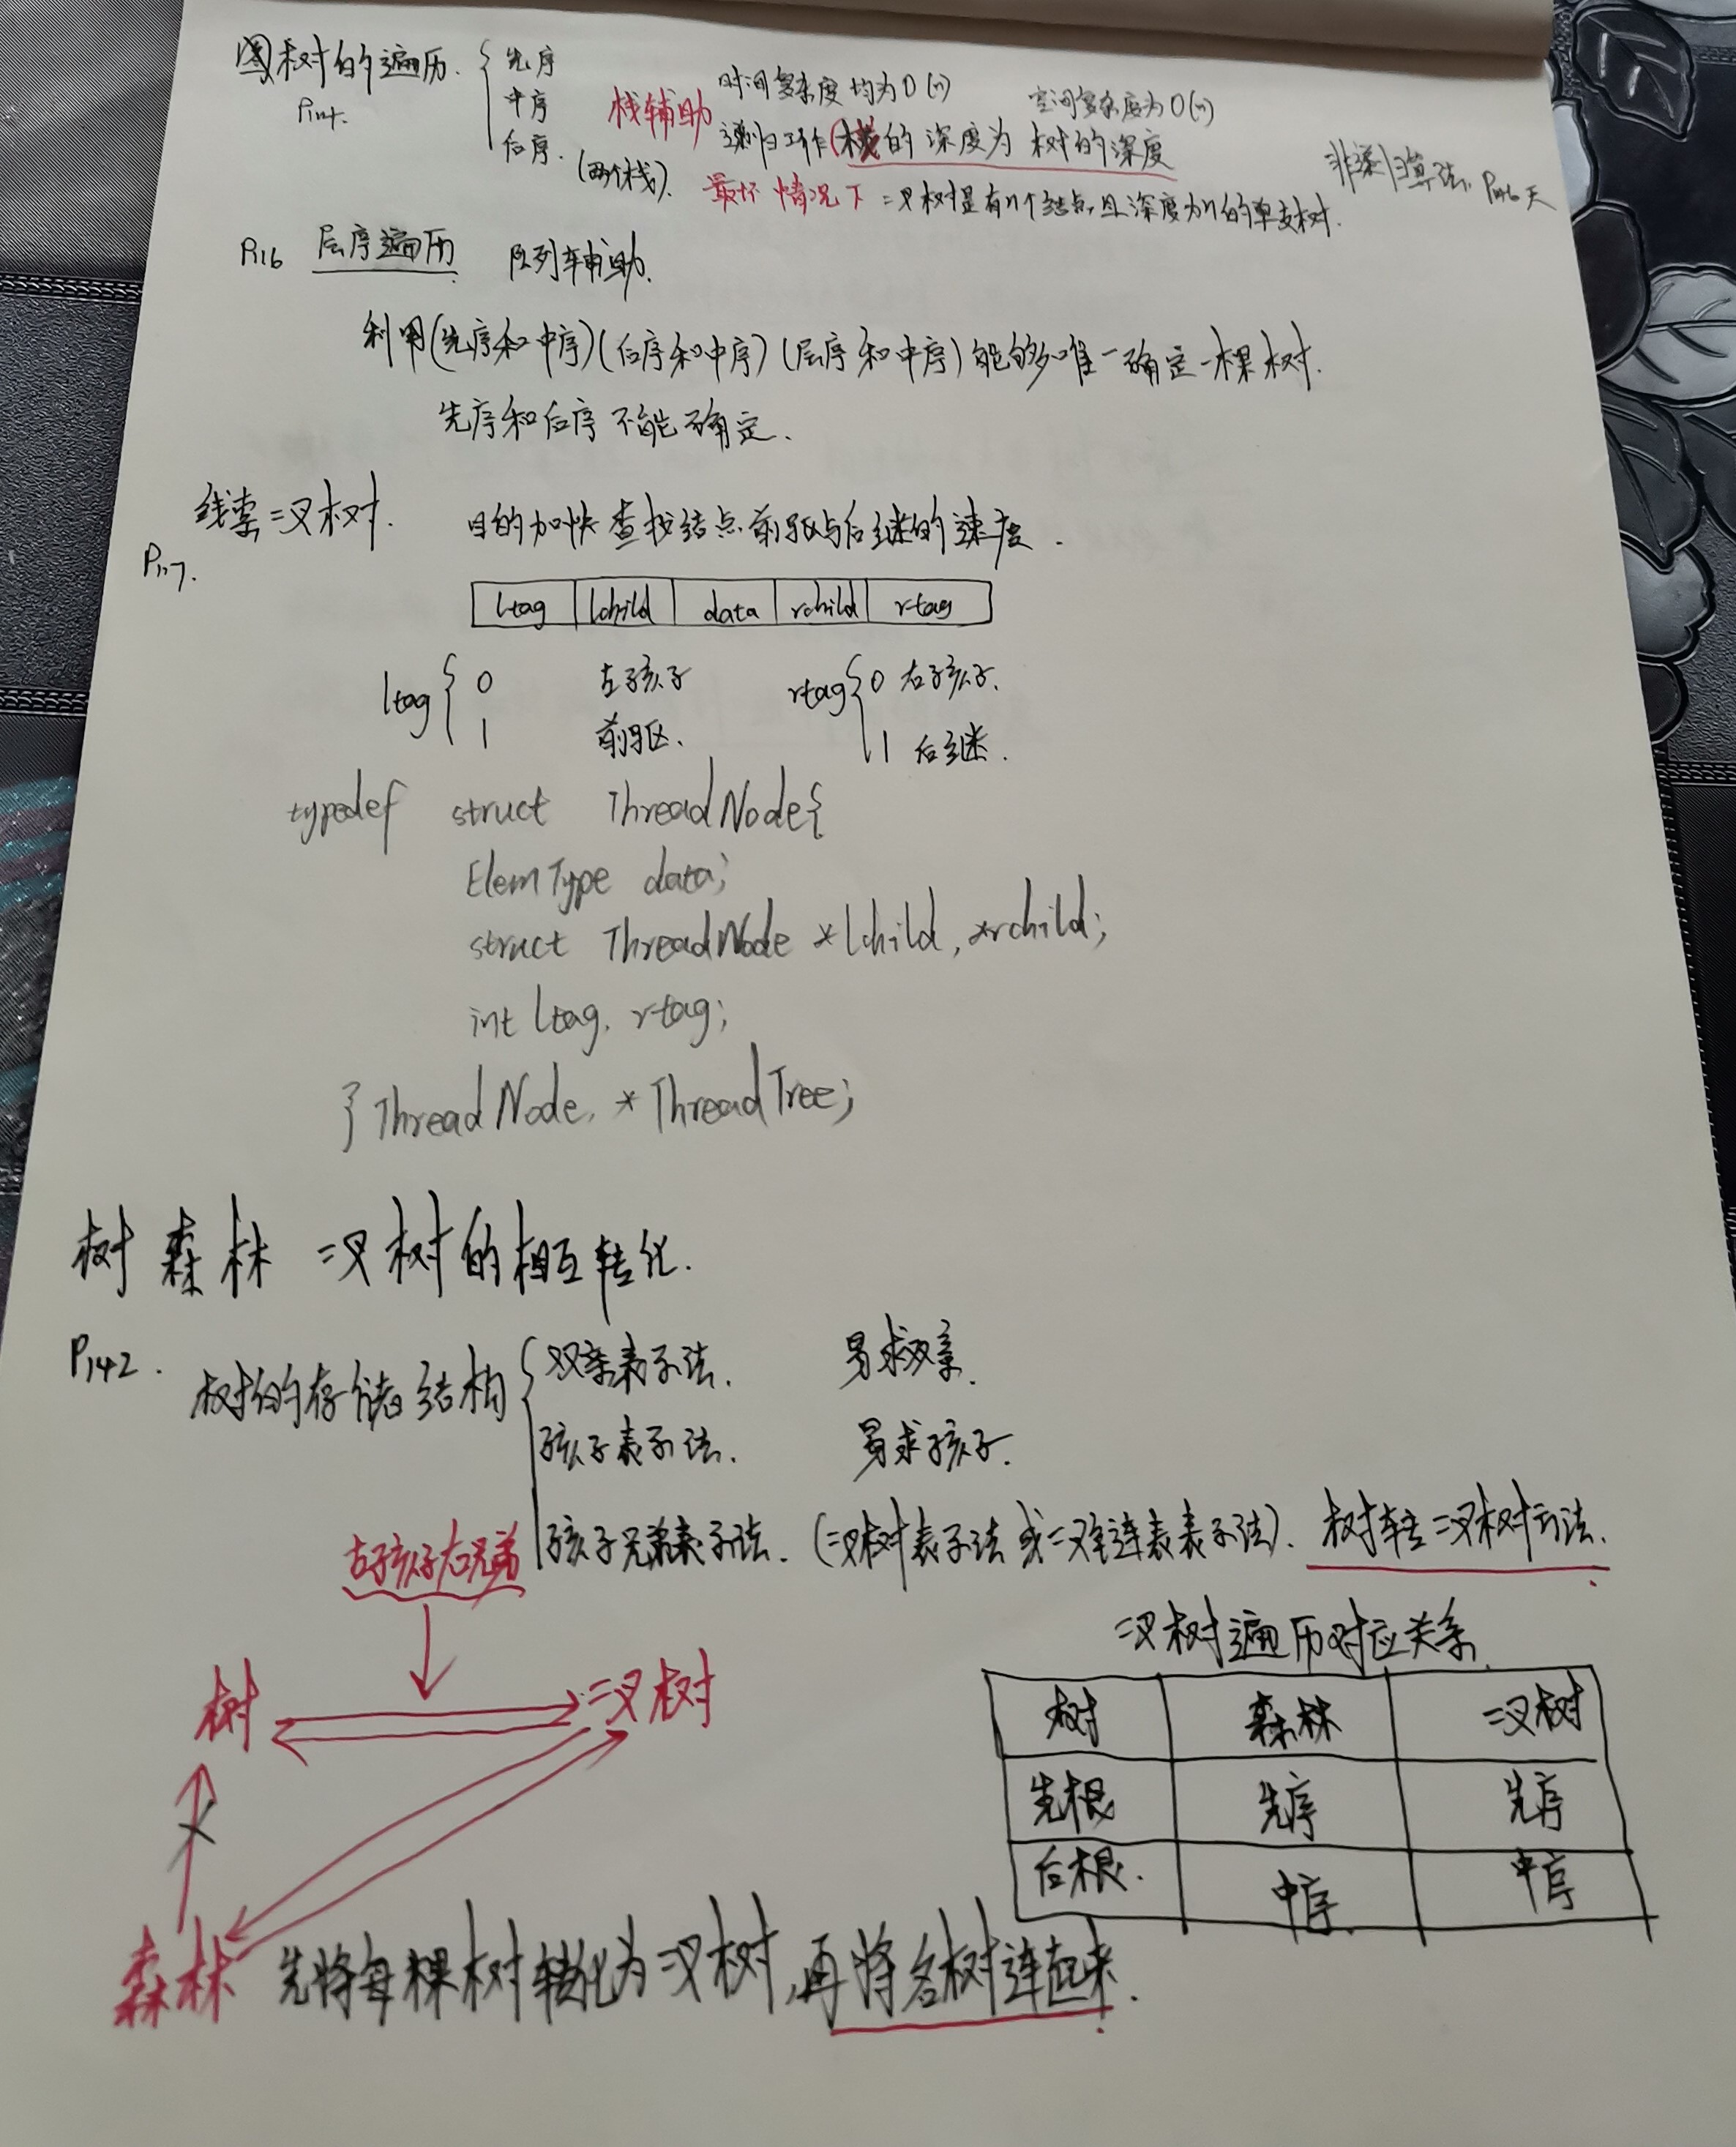 树的遍历.
先序
中序
后序.
(两个栈).
栈辅助
时间复杂度均为O(n)
空间复杂度为O(n)
递归工作栈的深度为树的深度
最坏情况下 二叉树是有n个结点且深度为n的单支树.
非递归算法
P116 层序遍历 队列辅助.
利用(先序和中序)(后序和中序)(层序和中序)能够唯一确定一棵树.
先序和后序不能确定.
线索二叉树. 目的加快查找结点前驱与后继的速度.
P117.
ltag lchild data rchild rtag
ltag { 0 左孩子 rtag { 0 右孩子.
1 前驱. 1 后继.
typedef struct ThreadNode{
ElemType data;
struct ThreadNode *lchild, *rchild;
int ltag, rtag;
}ThreadNode, *ThreadTree;
树 森林 二叉树的相互转化.
P142.
树的存储结构
双亲表示法. 易求双亲.
孩子表示法. 易求孩子.
孩子兄弟表示法. (二叉树表示法或二叉链表表示法). 树转二叉树方法.
左孩子右兄弟
树 二叉树
森林 先将每棵树转化为二叉树,再将各树连起来.
二叉树遍历对应关系
树 森林 二叉树
先根 先序 先序
后根. 中序. 中序